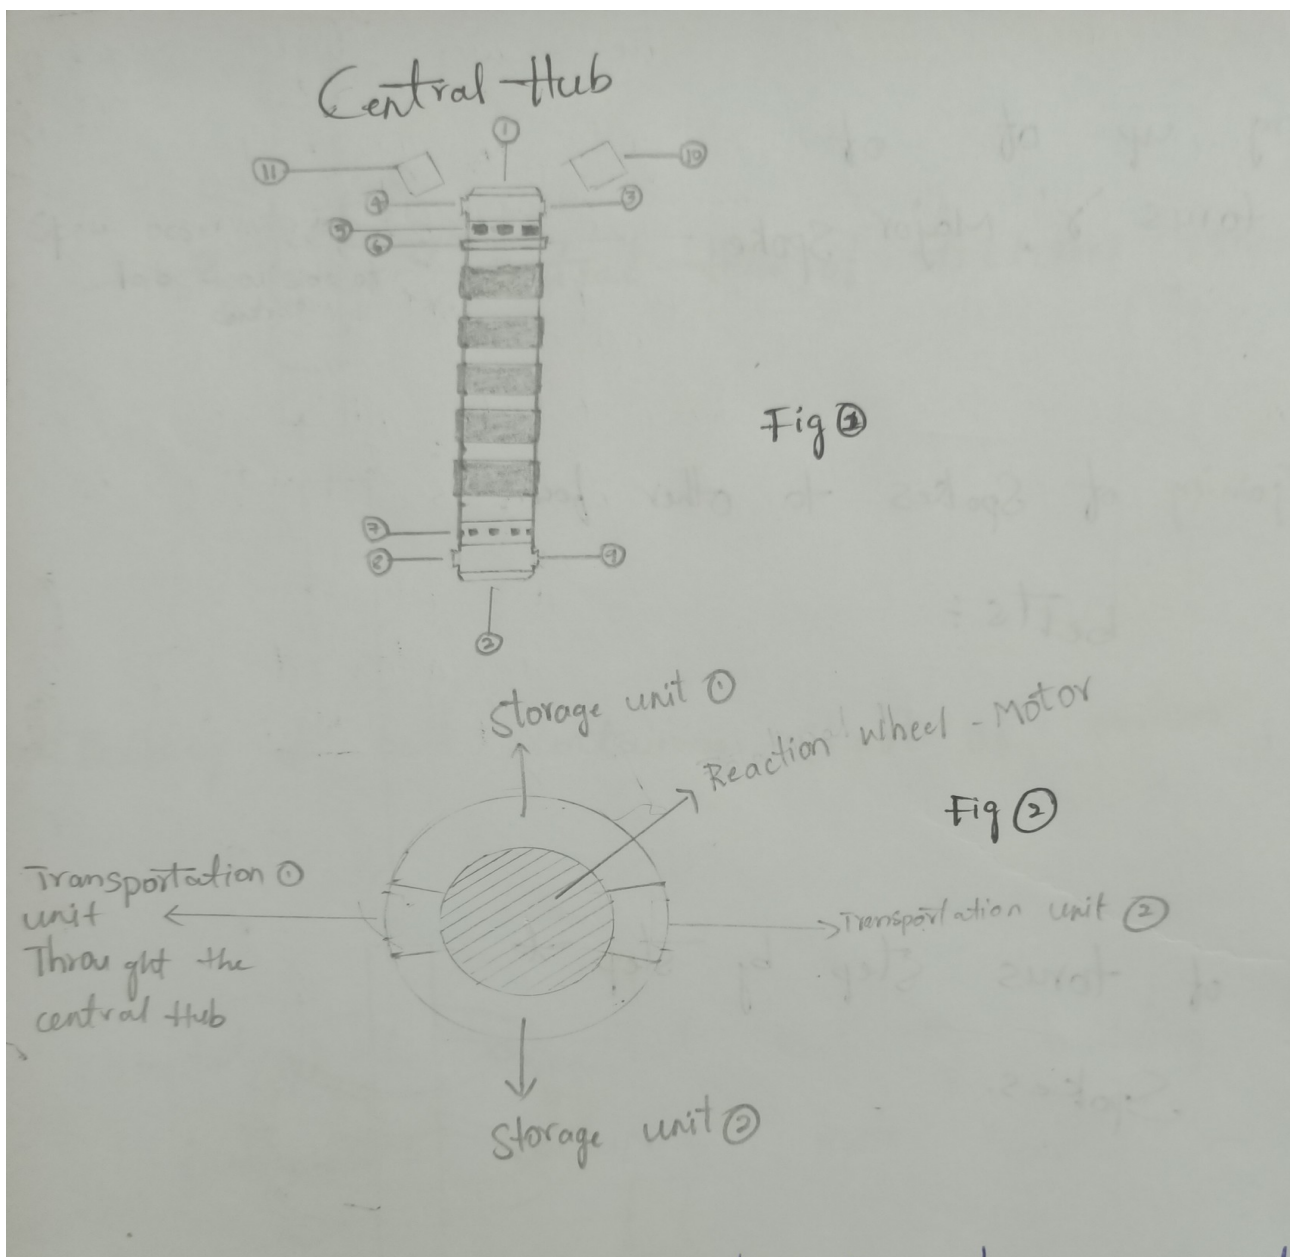 Central Hub
①
⑪
⑩
④
③
⑤
⑥
Fig ①
⑦
⑧
⑨
②
Storage unit ①
Reaction wheel - Motor
Fig ②
Transportation ①
unit
Throught the
central Hub
Transportation unit ②
Storage unit ②